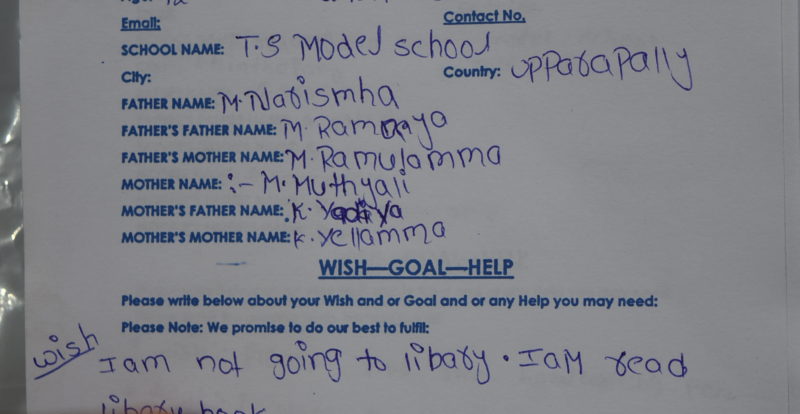 Email: Contact No.
SCHOOL NAME: T.S Model school
City: Country: upparapally
FATHER NAME: M. Narismha
FATHER'S FATHER NAME: M. Ramaya
FATHER'S MOTHER NAME: M. Ramulamma
MOTHER NAME: :- M. Muthyali
MOTHER'S FATHER NAME: K. Yadiya
MOTHER'S MOTHER NAME: K. Yellamma
WISH—GOAL—HELP
Please write below about your Wish and or Goal and or any Help you may need:
Please Note: We promise to do our best to fulfil:
wish
I am not going to libary. I am read
libary book